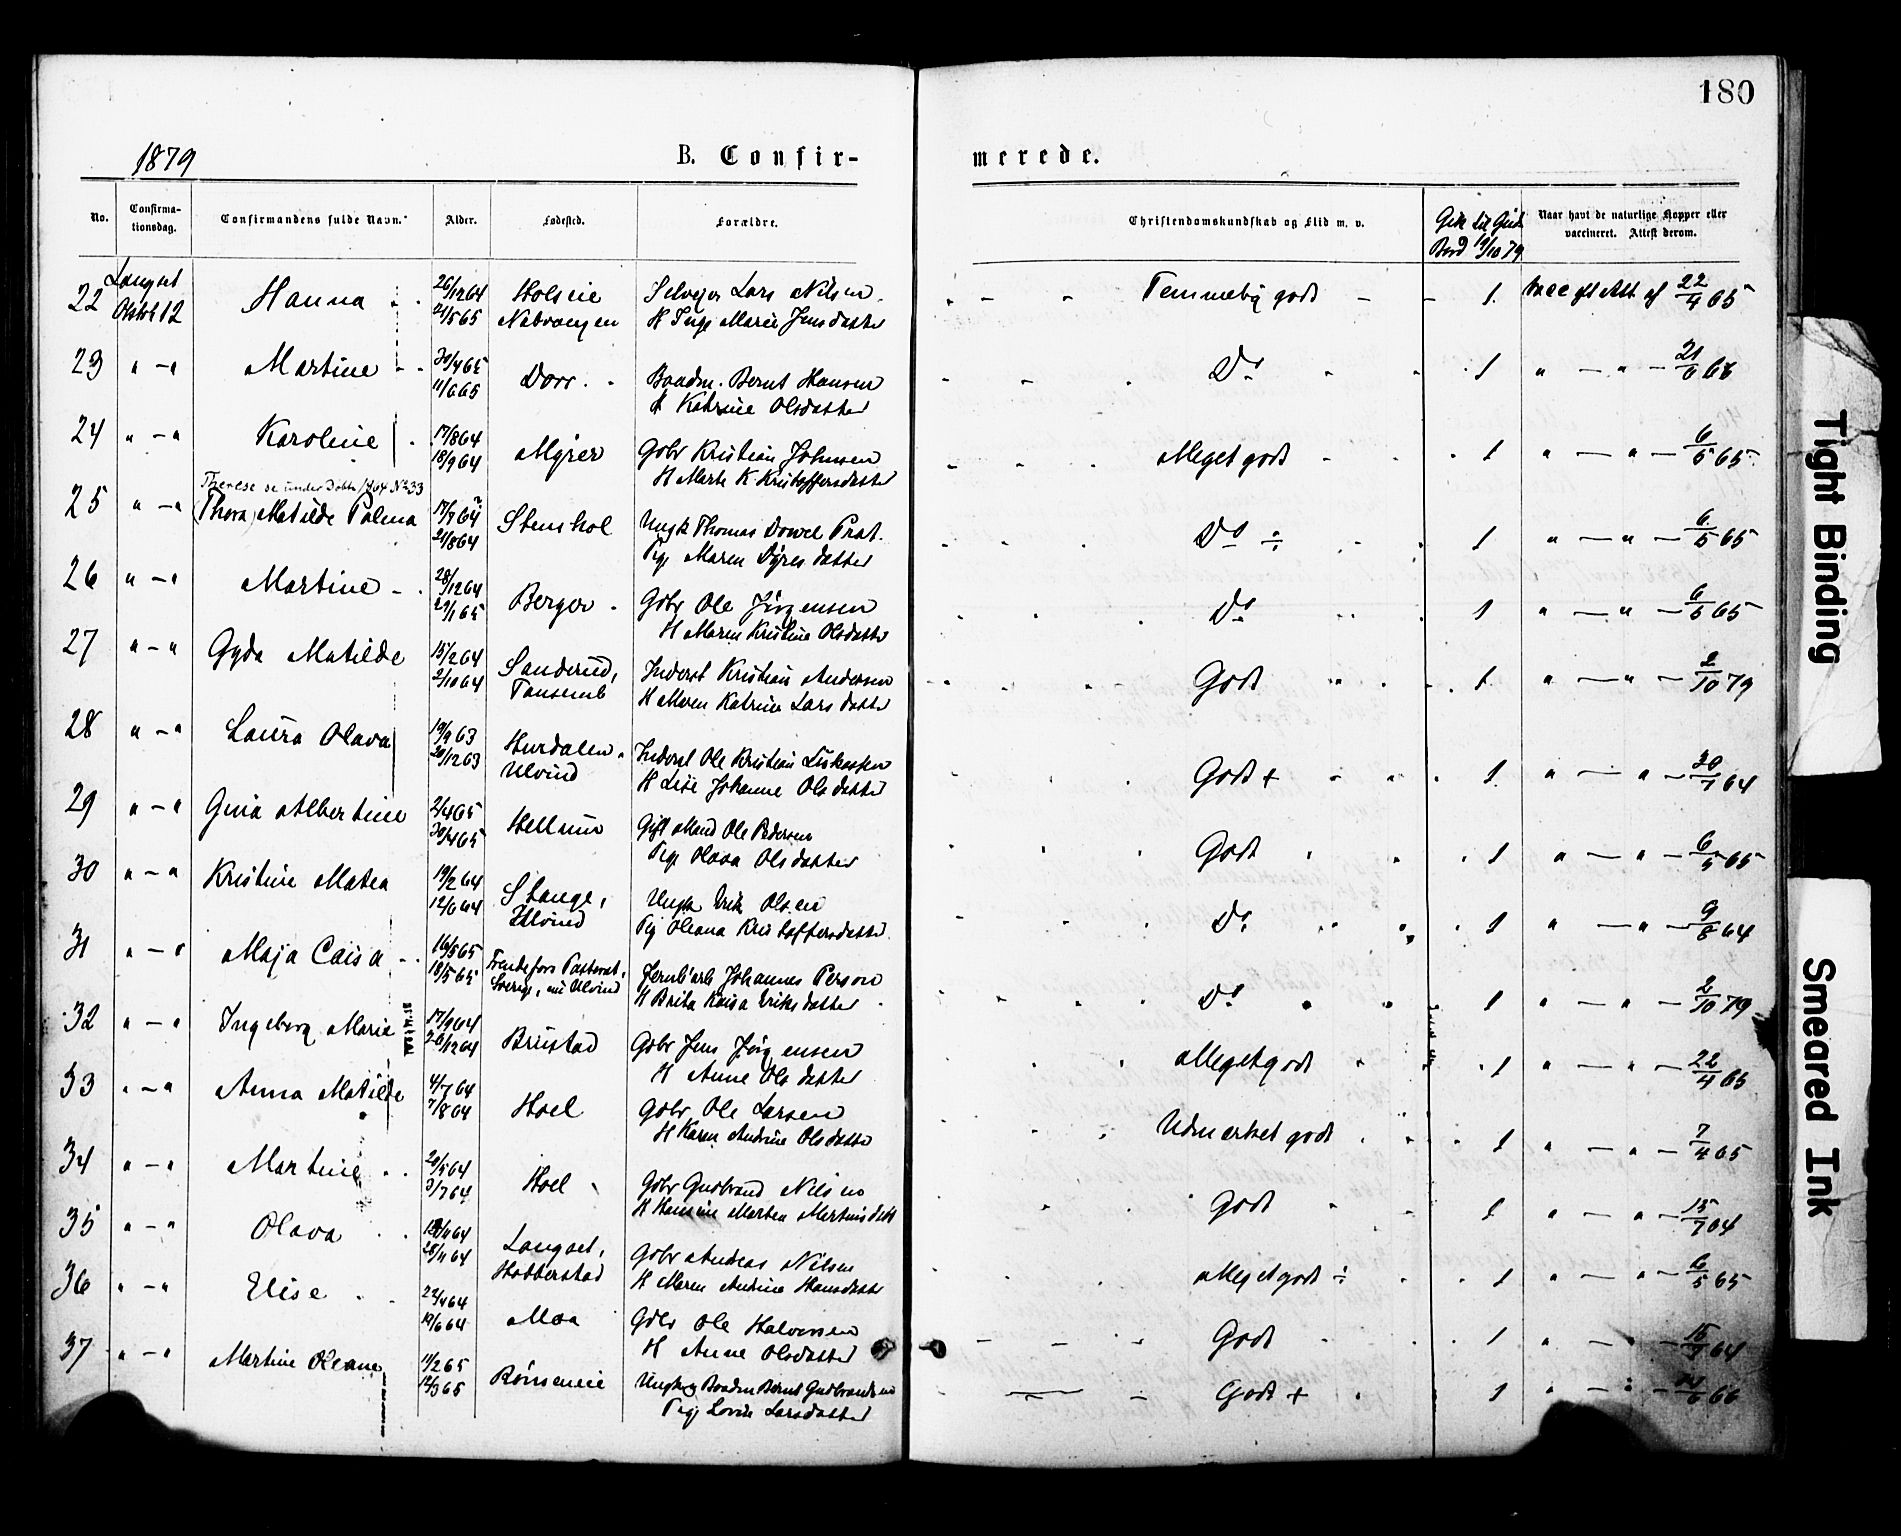 180
1879 B. Confir- merede.
No. Confirma-tionsdag. Confirmandens fulde Navn. Alder. Fødested. Forældre. Christendomskundskab og Flid m. v. Gik til Guds Bord 19/10 79 Naar havt de naturlige Kopper eller vaccineret. Attest derom.
Langset
22 Oktob 12 Hanna 26/12 64 Holseie Selvejer Lars Nilsen Temmelig godt 1. vacc flt Att. af 22/4 65
21/5 65 Nabvangen H Inge Marie Jensdatter
23 " — " Martine 30/4 65 Dorr Baadm. Bernt Hansen Do 1 " — " — 21/6 68
11/6 65 H Katrine Olsdatter
24 " — " Karoline 17/8 64 Myrer Gdbr Kristian Johnsen Meget godt 1 " — " — 6/5 65
18/9 64 H Marte K. Kristoffersdatter
Therese se under Døbte 1864 No 33
25 " — " (Thora) Matilde Palma 17/7 64 Stenshol Ungk Thomas Dowel Prat. Do ÷ 1 " — " — 6/5 65
21/8 64 Pige Maren Dyresdatter
26 " — " Martine 28/12 64 Berger Gdbr Ole Jørgensen Do 1 " — " — 6/5 65
29/1 65 H Maren Kristine Olsdatter
27 " — " Gyda Matilde 15/2 64 Sanderud, Inderst Kristian Andersen Godt 1 " — " — 2/10 79
2/10 64 Tansemb H Maren Katrine Larsdatter
28 " — " Laura Olava 19/9 63 Hurdalen Inderst Ole Kristian Godt + 1 " — " — 30/7 64
20/12 63 Ulvind H Lise Johanne Olsdatter
29 " — " Gina Albertine 2/4 65 Hellum Gift Mand Ole Pedersen Godt 1 " — " — 6/5 65
30/4 65 Pige Olava Olsdatter
30 " — " Kristine Matea 19/2 64 Stange, Ungk Erik Olsen Do 1 " — " — 9/8 64
12/6 64 Ulvind Pig Oleana Kristoffersdatter
31 " — " Maja Caisa 16/5 65 Frendefors Pastorat, Jernb.arb Johannes Person Do 1 " — " — 2/10 79
18/5 65 Sverige, nu Ulvind H Brita Kaisa Eriksdatter
32 " — " Ingeborg Marie 17/9 64 Brustad Gdbr Jens Jørgensen Meget godt 1 " — " — 22/4 65
26/12 64 H Anne Olsdatter
33 " — " Anna Matilde 4/7 64 Hoel Gdbr Ole Larsen Udmærket godt 1 " — " — 7/4 65
7/8 64 H Karen Andrine Olsdatter
34 " — " Martine 20/5 64 Hoel Gdbr Gudbrand Nilsen Godt 1 " — " — 15/7 64
3/7 64 H Hansine Martea Martinsdatt
35 " — " Olava 12/11 64 Langset, Gdbr Andreas Nilsen Meget godt ÷ 1 " — " — 6/5 65
28/11 64 Habberstad H Maren Andrine Hansdatter
36 " — " Elise 22/4 64 Moa Gdbr Ole Halvorsen Godt 1 " — " — 15/7 64
19/6 64 H Anne Olsdatter
37 " — " Martine Oleane 11/2 65 Rønseneie Ungk og Baadm Bernt Gudbrandsen Godt + 1 " — " — 66
12/3 65 Pige Lovise Larsdatter
Tight Binding
Smeared Ink